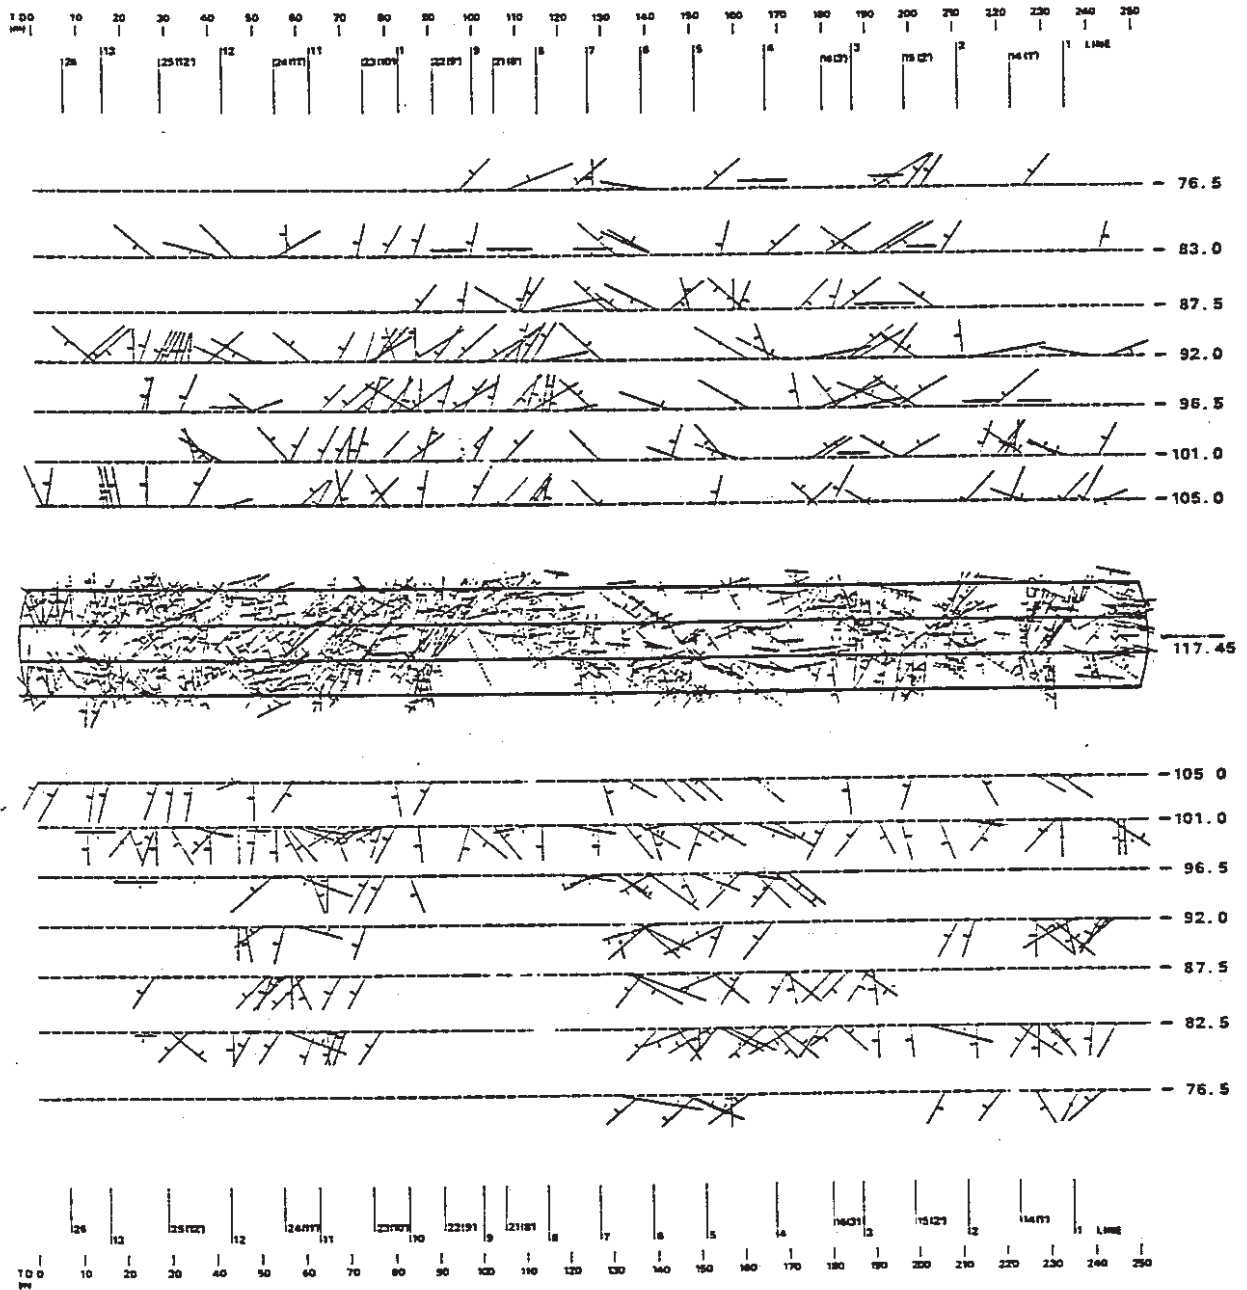 T D 0 10 20 30 40 50 60 70 80 90 100 110 120 130 140 150 160 170 180 190 200 210 220 230 240 250
26 13 25(12') 12 24(11') 11 23(10') 9 8 7 6 5 4 16(3') 3 15(2') 2 14(1') 1 LINE
- 76.5
- 83.0
- 87.5
- 92.0
- 96.5
- 101.0
- 105.0
117.45
- 105 0
- 101.0
- 96.5
- 92.0
- 87.5
- 82.5
- 76.5
26 13 25(12') 12 24(11') 11 23(10') 10 22(9') 9 21(8') 8 7 6 5 4 16(3') 3 15(2') 2 14(1') 1 LINE
T D 0 10 20 30 40 50 60 70 80 90 100 110 120 130 140 150 160 170 180 190 200 210 220 230 240 250